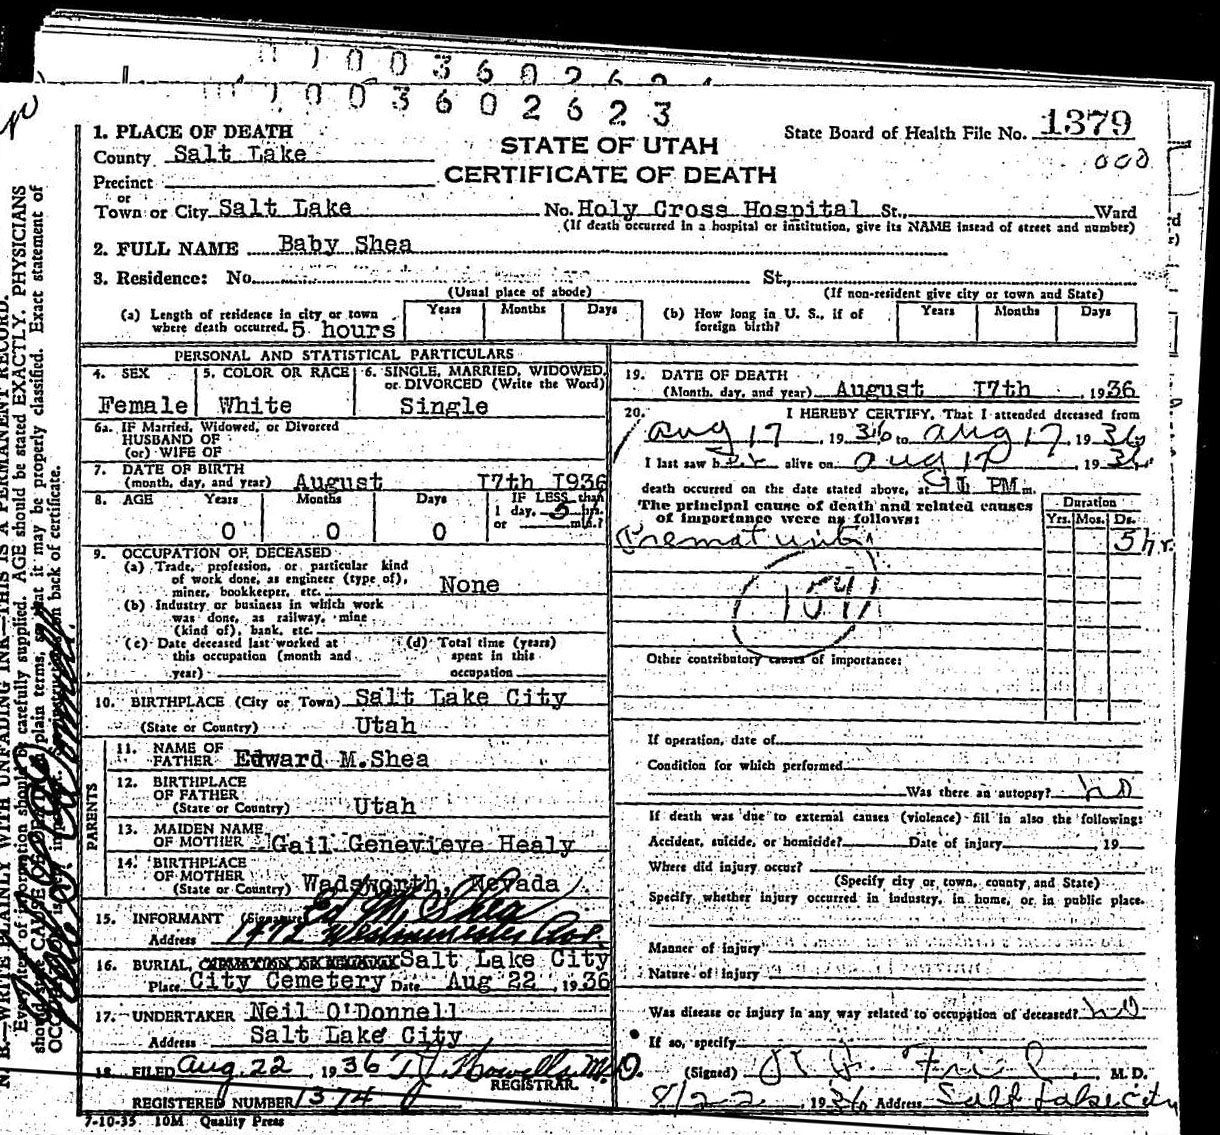 1003602623
1. PLACE OF DEATH
County Salt Lake
Precinct
or
Town or City Salt Lake
STATE OF UTAH
CERTIFICATE OF DEATH
State Board of Health File No. 1379
000
No. Holy Cross Hospital St., Ward
(If death occurred in a hospital or institution, give its NAME insead of street and number)
2. FULL NAME Baby Shea
3. Residence: No. St.,
(Usual place of abode) (If non-resident give city or town and State)
(a) Length of residence in city or town where death occurred. 5 hours Years Months Days
(b) How long in U. S., if of foreign birth? Years Months Days
PERSONAL AND STATISTICAL PARTICULARS
4. SEX Female
5. COLOR OR RACE White
6. SINGLE, MARRIED, WIDOWED, or DIVORCED (Write the Word) Single
6a. IF Married, Widowed, or Divorced
HUSBAND OF
(or) WIFE OF
7. DATE OF BIRTH
(month, day, and year) August 17th 1936
8. AGE Years Months Days IF LESS than
0 0 0 1 day, 5 hrs.
or min.?
9. OCCUPATION OF DECEASED
(a) Trade, profession, or particular kind
of work done, as engineer (type of),
miner, bookkeeper, etc. None
(b) Industry or business in which work
was done, as railway, mine
(kind of), bank, etc.
(c) Date deceased last worked at
this occupation (month and
year)
(d) Total time (years)
spent in this
occupation
10. BIRTHPLACE (City or Town) Salt Lake City
(State or Country) Utah
PARENTS
11. NAME OF
FATHER Edward M.Shea
12. BIRTHPLACE
OF FATHER
(State or Country) Utah
13. MAIDEN NAME
OF MOTHER Gail Genevieve Healy
14. BIRTHPLACE
OF MOTHER
(State or Country) Wadsworth, Nevada
15. INFORMANT (Signature) Ed M. Shea
Address Westminster Ave.
16. BURIAL, Salt Lake City
Place City Cemetery Date Aug 22, 1936
17. UNDERTAKER Neil O'Donnell
Address Salt Lake City
18. FILED Aug. 22, 1936 T. J. Howells M.D.
REGISTRAR.
REGISTERED NUMBER 1374
7-10-35 10M Quality Press
19. DATE OF DEATH
(Month, day, and year) August 17th 1936
20. I HEREBY CERTIFY, That I attended deceased from
Aug 17, 1936 to Aug 17, 1936
I last saw her alive on Aug 17, 1936
death occurred on the date stated above, at 11 PM m.
The principal cause of death and related causes
of importance were as follows:
Duration
Yrs. Mos. Ds.
Prematurity 5 hr.
159
Other contributory causes of importance:
If operation, date of
Condition for which performed
Was there an autopsy? No
If death was due to external causes (violence) fill in also the following:
Accident, suicide, or homicide? Date of injury 19
Where did injury occur?
(Specify city or town, county, and State)
Specify whether injury occurred in industry, in home, or in public place.
Manner of injury
Nature of injury
Was disease or injury in any way related to occupation of deceased? No
If so, specify
(Signed) M. D.
8/22, 1936 Address Salt Lake City
N. B.—WRITE PLAINLY WITH UNFADING INK—THIS IS A PERMANENT RECORD.